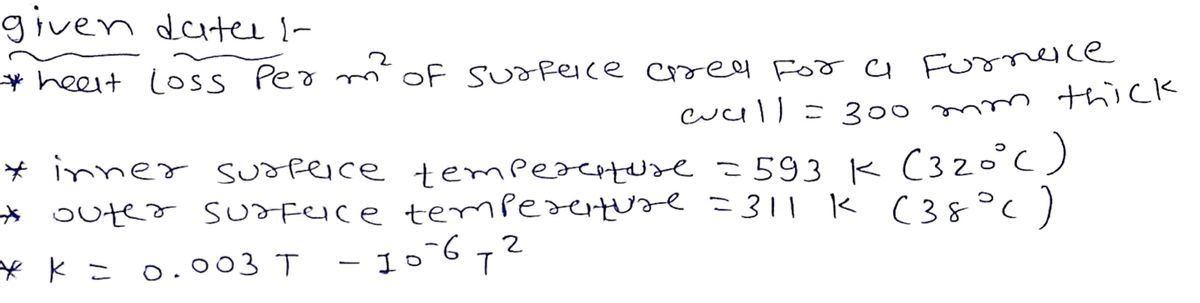 given data :-
* heat loss Per m² of surface area For a Furnace
wall = 300 mm thick
* inner surface temperature = 593 K (320°C)
* outer surface temperature = 311 K (38°C)
* K = 0.003 T - 10⁻⁶ T²